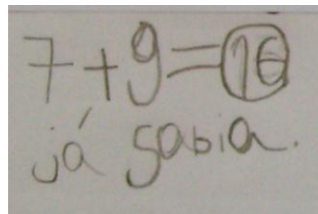 7+9=16
já sabia.